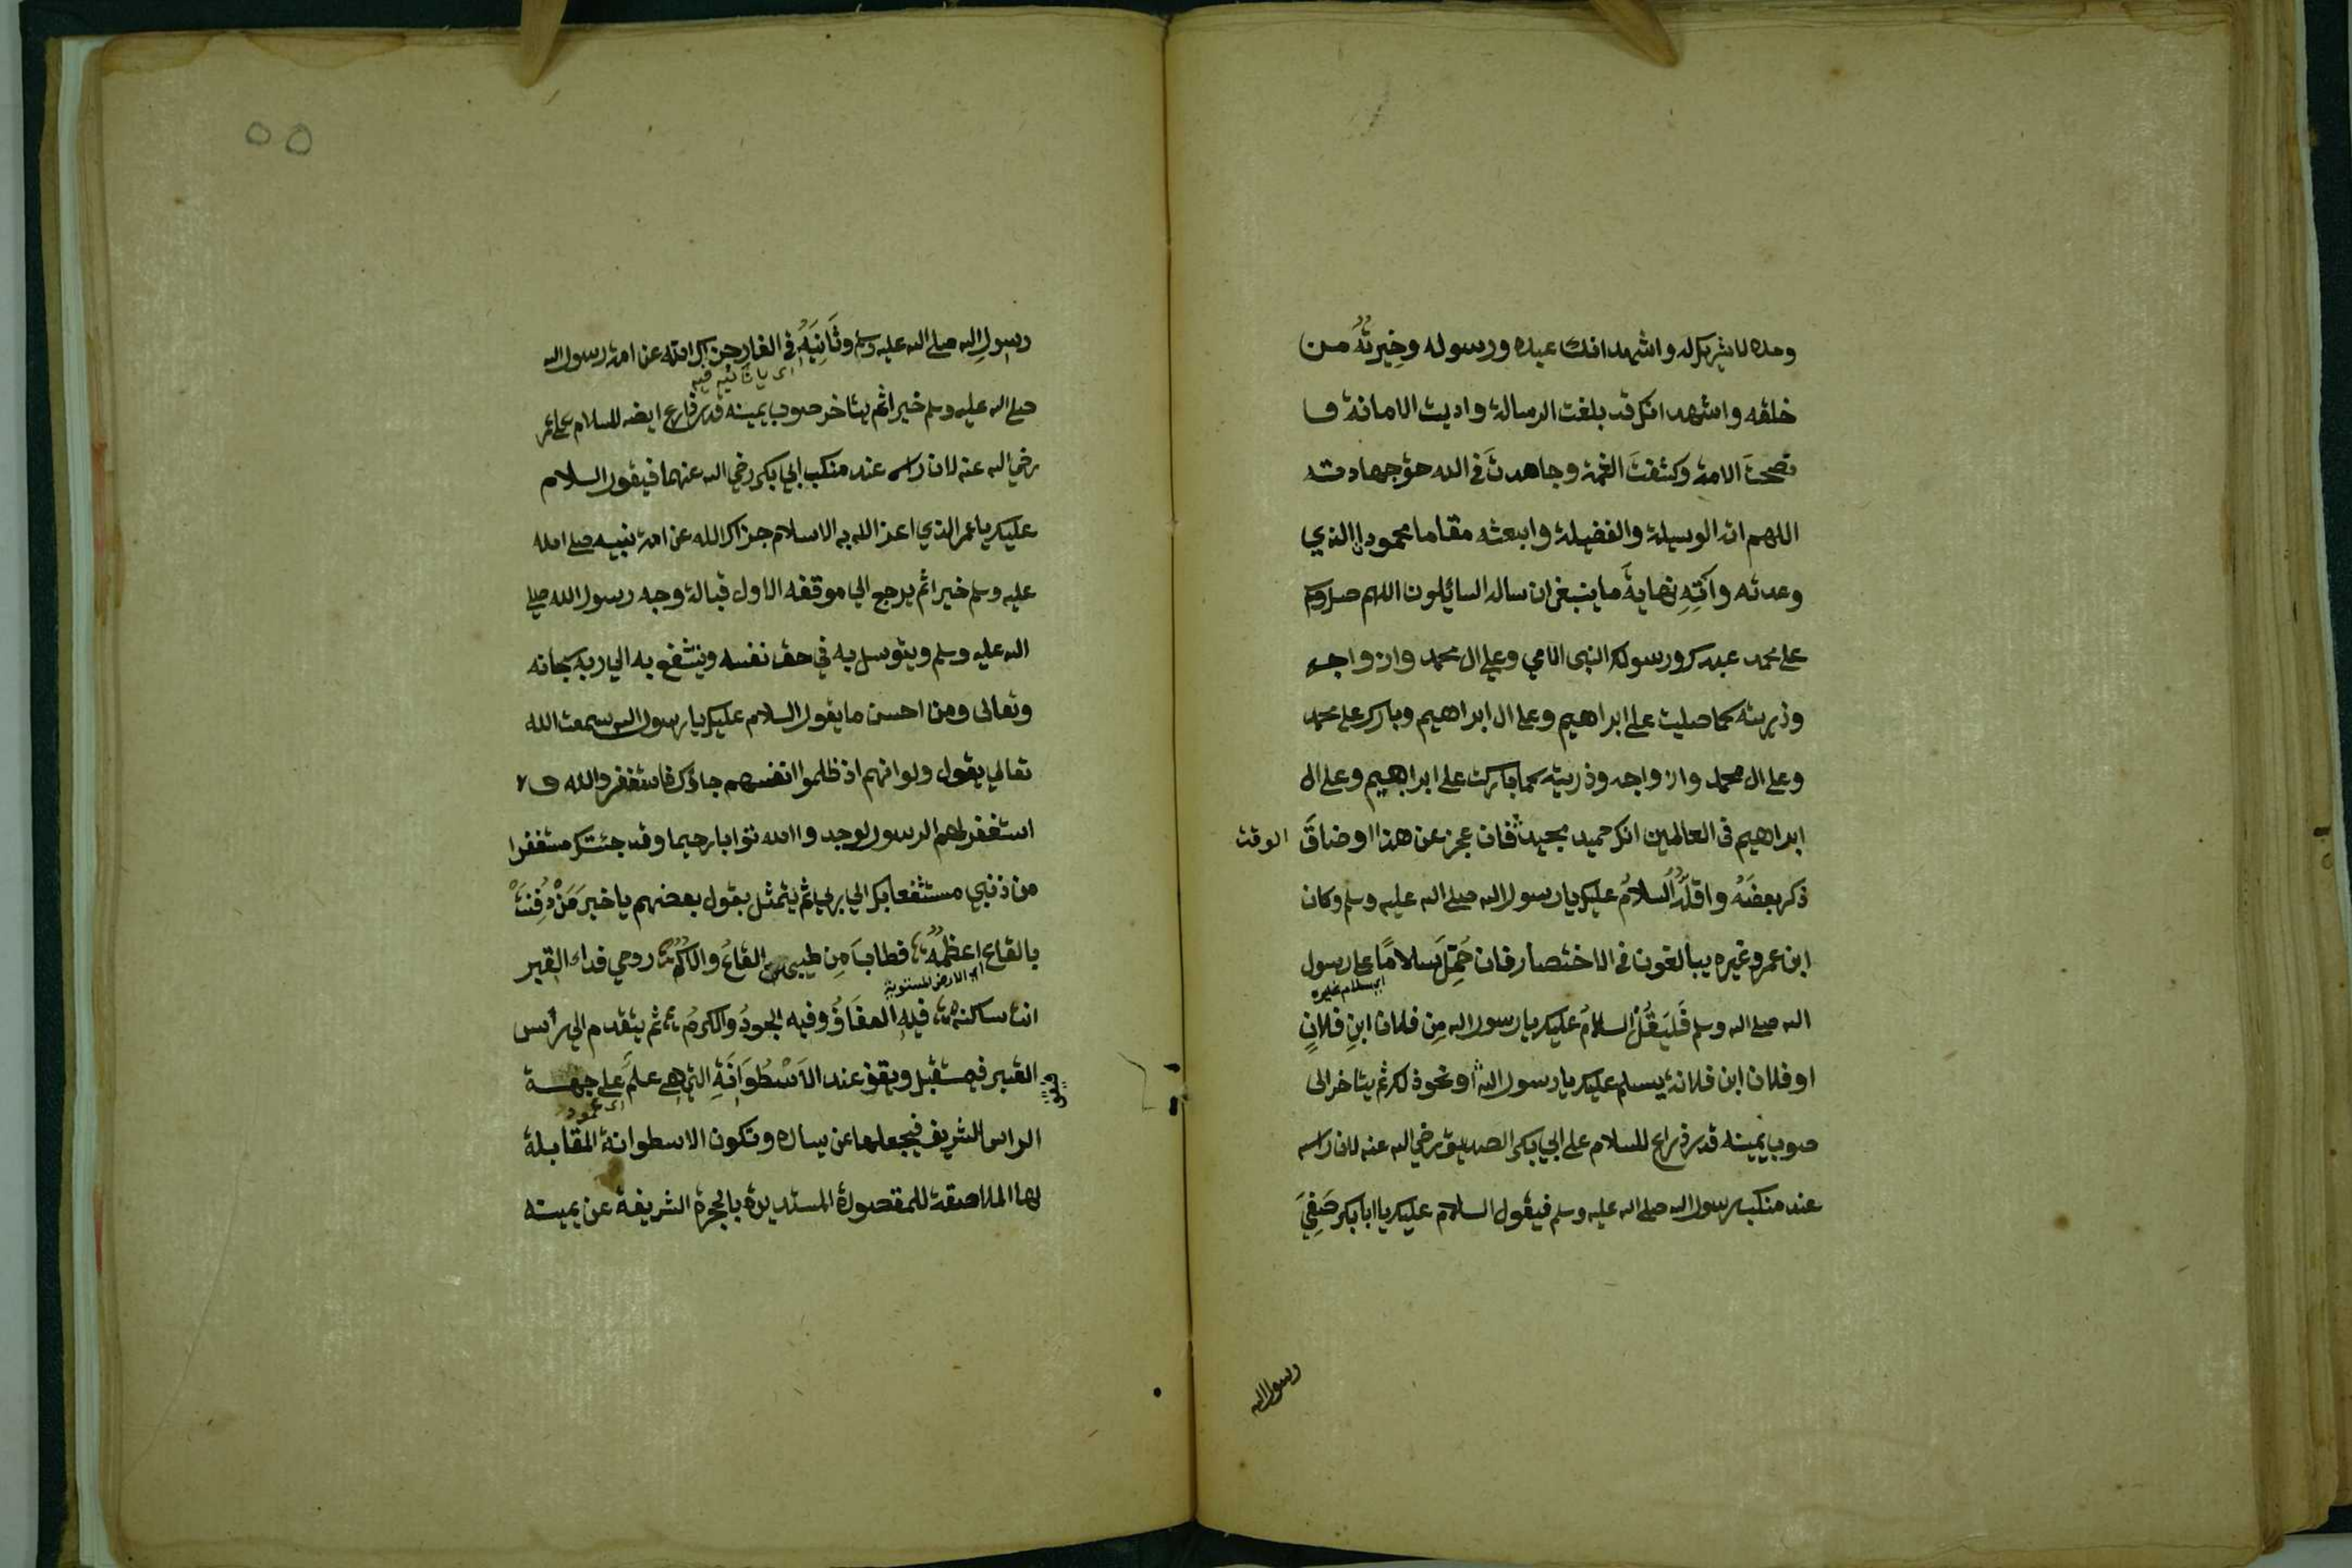 وحده لا شريك له واشهد انك عبده ورسوله وخِيرتُهُ من
خلقه واشهد انك قد بلغت الرسالة واديت الامانة و
نصحتَ الامة وكشفتَ الغمة وجاهدتَ في الله حق جهادته
اللهم اته الوسيلة والفضيلة وابعثه مقاما محمودا الذي
وعدته وآتِهِ نهايةَ ما ينبغي ان ساله السايلون اللهم صل وسلم
على محمد عبدك ورسولك النبى الامي وعلي ال محمد وازواجه
وذريته كما صليت على ابراهيم وعلى ال ابراهيم وبارك على محمد
وعلى ال محمد وازواجه وذريته كما باركت على ابراهيم وعلى ال
ابراهيم فى العالمين انك حميد مجيد فان عجز عن هذا او ضاقَ الوقت
ذكر بعضَهُ واقلُّهُ السلامُ عليك يا رسول الله صلى الله عليه وسلم وكان
ابن عمر وغيره يبالغون فى الاختصار فان حُمِّلَ سلامًا على رسول
اي سلام غيره
الله صلى الله وسلم فَليَقُلْ السلامُ عليك يا رسول الله مِن فلان ابنِ فلانٍ
او فلان ابن فلانة يسلم عليك يا رسول الله او نحو ذلك ثم يتاخر الى
صوب يمينه قدر ذراع للسلام على ابي بكر الصديق رضي الله عنه لان راسه
عند منكب رسول الله صلى الله عليه وسلم فيقول السلام عليك يا ابا بكر صَفِيَّ
رسول الله
٥٥
رسولِ الله صلى الله عليه وسلم وثَانِيَهُ فى الغار جزاك الله عن امة رسول الله
اى يا ثانيه فيه
صلى الله عليه وسلم خيرا ثم يتاخر صوب يمينه قدر ذراع ايضا للسلام على عمر
رضي الله عنه لان راسه عند منكب ابي بكر رضي الله عنهما فيقول السلام
عليك يا عمر الذي اعز الله به الاسلام جزاك الله عن امة نبيه صلى الله
عليه وسلم خيرا ثم يرجع الي موقفه الاول قبالة وجه رسول الله صلى
الله عليه وسلم ويتوسل به في حق نفسه ويتشفع به الي ربه سبحانه
وتعالى ومن احسن ما يقول السلام عليك يا رسول الله سمعت الله
تعالي يقول ولو انهم اذ ظلموا انفسهم جاؤك فاستغفروا الله و
استغفر لهم الرسول لوجدوا الله توابا رحيما وقد جئتك مستغفرا
من ذنبي مستشفعا بك الي ربي ثم يتمثل بقول بعضهم يا خيرَ مَنْ دُفِنَتْ
بالقاع اعظمُهُ فطابَ مِن طيبهن القاعُ والاكُمُ روحي فداء القبر
اي الارض المستوية
انت ساكنه فيهِ العفَافُ وفيه الجودُ والكرمُ ثم يتقدم الي راس
القبر فيستقبل ويقف عند الاُسْطُوَانَةِ التي هي علَمٌ على جهة
اى عمود
الراس الشريف فيجعلها عن يساره وتكون الاسطوانة المقابلة
لها الملاصقة للمقصورة المستديرة بالحجرة الشريفة عن يمينه